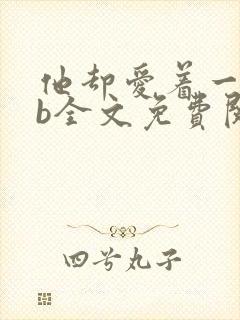 他却爱着一
b全文免費閱
四号丸子